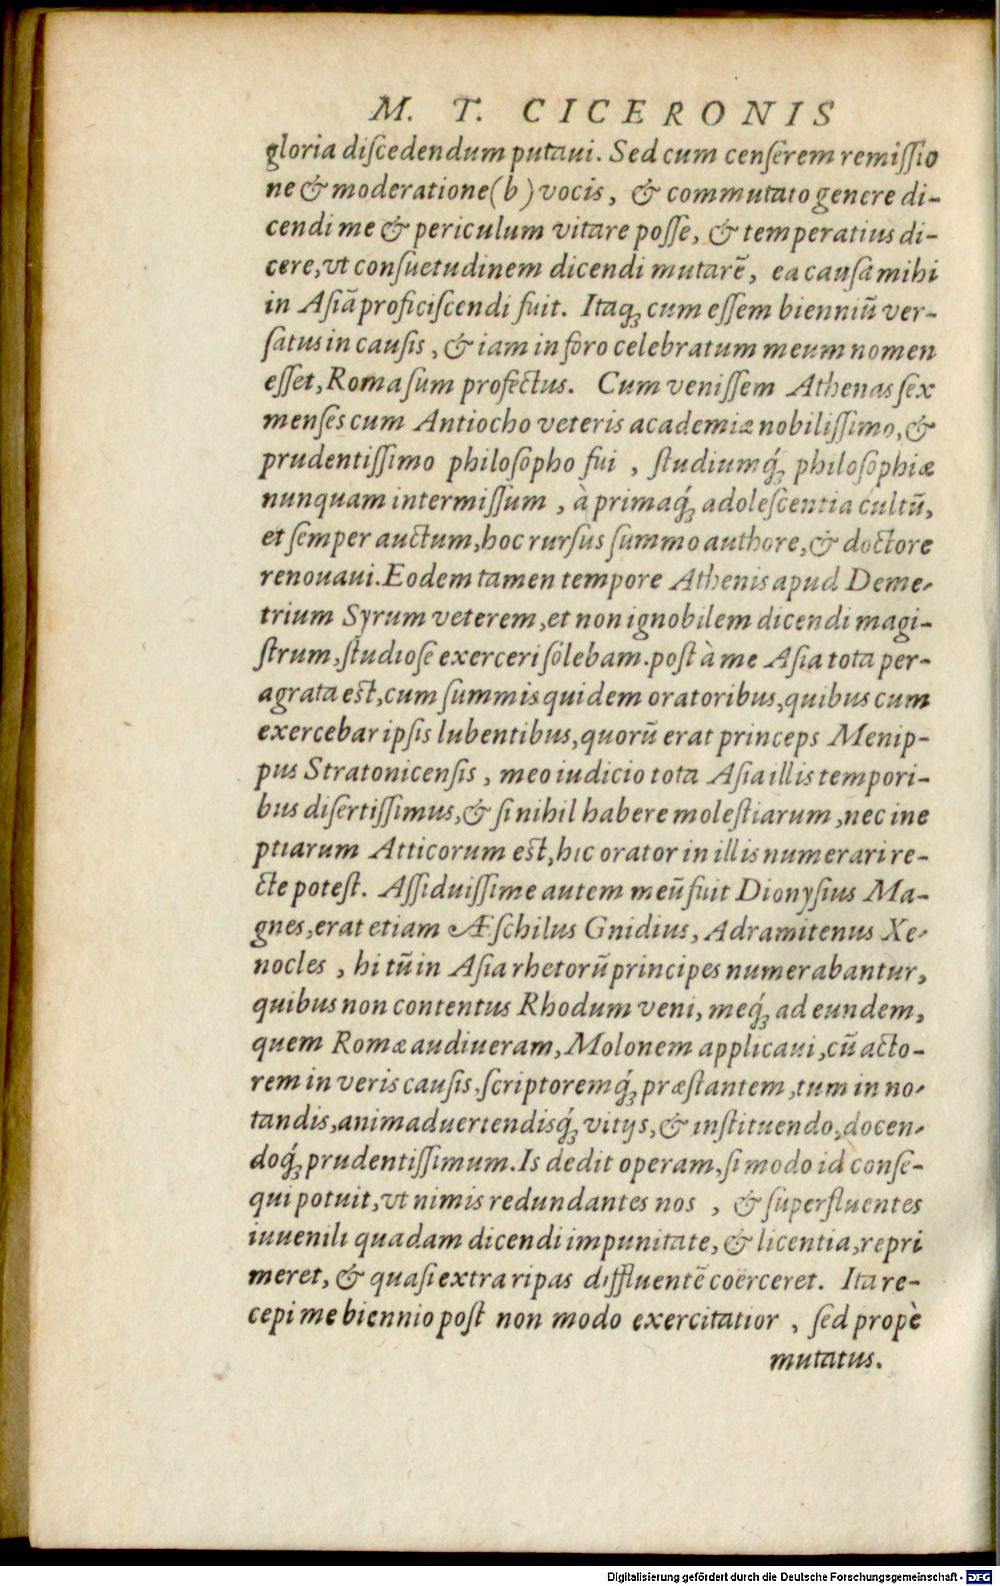 M. T. CICERONIS
gloria diſcedendum putaui. Sed cum cenſerem remiſſio
ne & moderatione (b) vocis, & commutato genere di-
cendi me & periculum vitare poſſe, & temperatius di-
cere, vt conſuetudinem dicendi mutarē, ea cauſa mihi
in Aſiā proficiſcendi fuit. Itaqꝫ cum eſſem bienniū ver-
ſatus in cauſis, & iam in foro celebratum meum nomen
eſſet, Roma ſum profectus. Cum veniſſem Athenas ſex
menſes cum Antiocho veteris academiæ nobiliſſimo, &
prudentiſſimo philoſopho fui, ſtudiumq́ꝫ philoſophiæ
nunquam intermiſſum, à primaq́ꝫ adoleſcentia cultū,
et ſemper auctum, hoc rurſus ſummo authore, & doctore
renouaui. Eodem tamen tempore Athenis apud Deme-
trium Syrum veterem, et non ignobilem dicendi magi-
ſtrum, ſtudioſe exerceri ſolebam. poſt à me Aſia tota per-
agrata eſt, cum ſummis quidem oratoribus, quibus cum
exercebar ipſis lubentibus, quorū erat princeps Menip-
pus Stratonicenſis, meo iudicio tota Aſia illis tempori-
bus diſertiſſimus, & ſi nihil habere moleſtiarum, nec ine
ptiarum Atticorum eſt, hic orator in illis numerari re-
cte poteſt. Aſſiduiſſime autem meū fuit Dionyſius Ma-
gnes, erat etiam Æſchilus Gnidius, Adramitenus Xe-
nocles, hi tū in Aſia rhetorū principes numerabantur,
quibus non contentus Rhodum veni, meq́ꝫ ad eundem,
quem Romæ audiueram, Molonem applicaui, cū acto-
rem in veris cauſis, ſcriptoremq́ꝫ præſtantem, tum in no-
tandis, animaduertendisq́ꝫ vitijs, & inſtituendo, docen-
doq́ꝫ prudentiſſimum. Is dedit operam, ſi modo id conſe-
qui potuit, vt nimis redundantes nos, & ſuperfluentes
iuuenili quadam dicendi impunitate, & licentia, repri
meret, & quaſi extra ripas diffluentē coërceret. Ita re-
cepi me biennio poſt non modo exercitatior, ſed propè
mutatus.
Digitalisierung gefördert durch die Deutsche Forschungsgemeinschaft - DFG